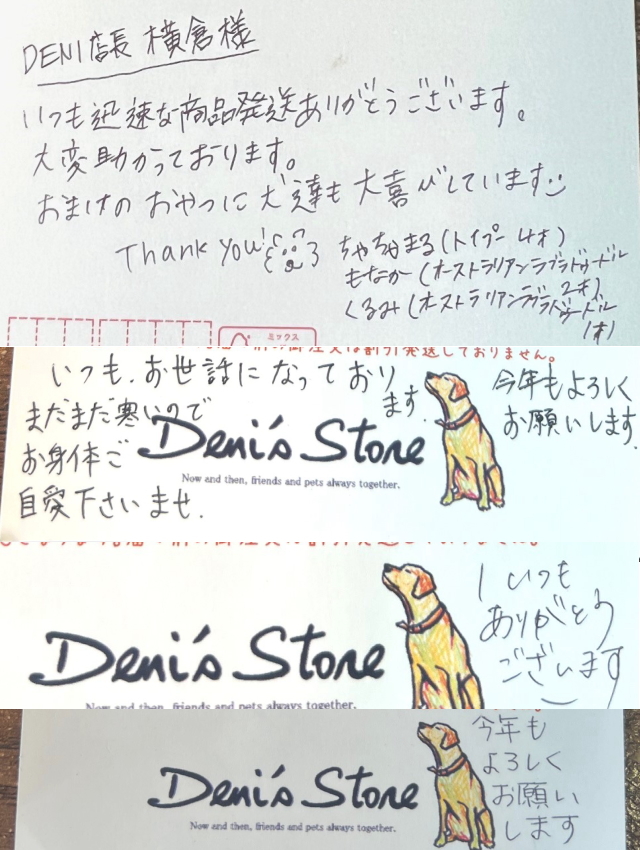 DENI店長 横倉様
いつも迅速な商品発送ありがとうございます。
大変助かっております。
おまけの おやつに 犬達も 大喜びしています
Thank you!
ちゃちゃまる(トイプー 4才)
もなか(オーストラリアンラブラドゥードル 2才)
くるみ(オーストラリアンラブラドゥードル 1才)
ミックス
御注文は割引発送しておりません。
いつも.お世話になっており
ます.
まだまだ寒いので
お身体ご
自愛下さいませ.
今年もよろしく
お願いします.
Deni's Store
Now and then, friends and pets always together.
いつも
ありがとう
ございます
Deni's Store
Now and then, friends and pets always together.
今年も
よろしく
お願い
します
Deni's Store
Now and then, friends and pets always together.